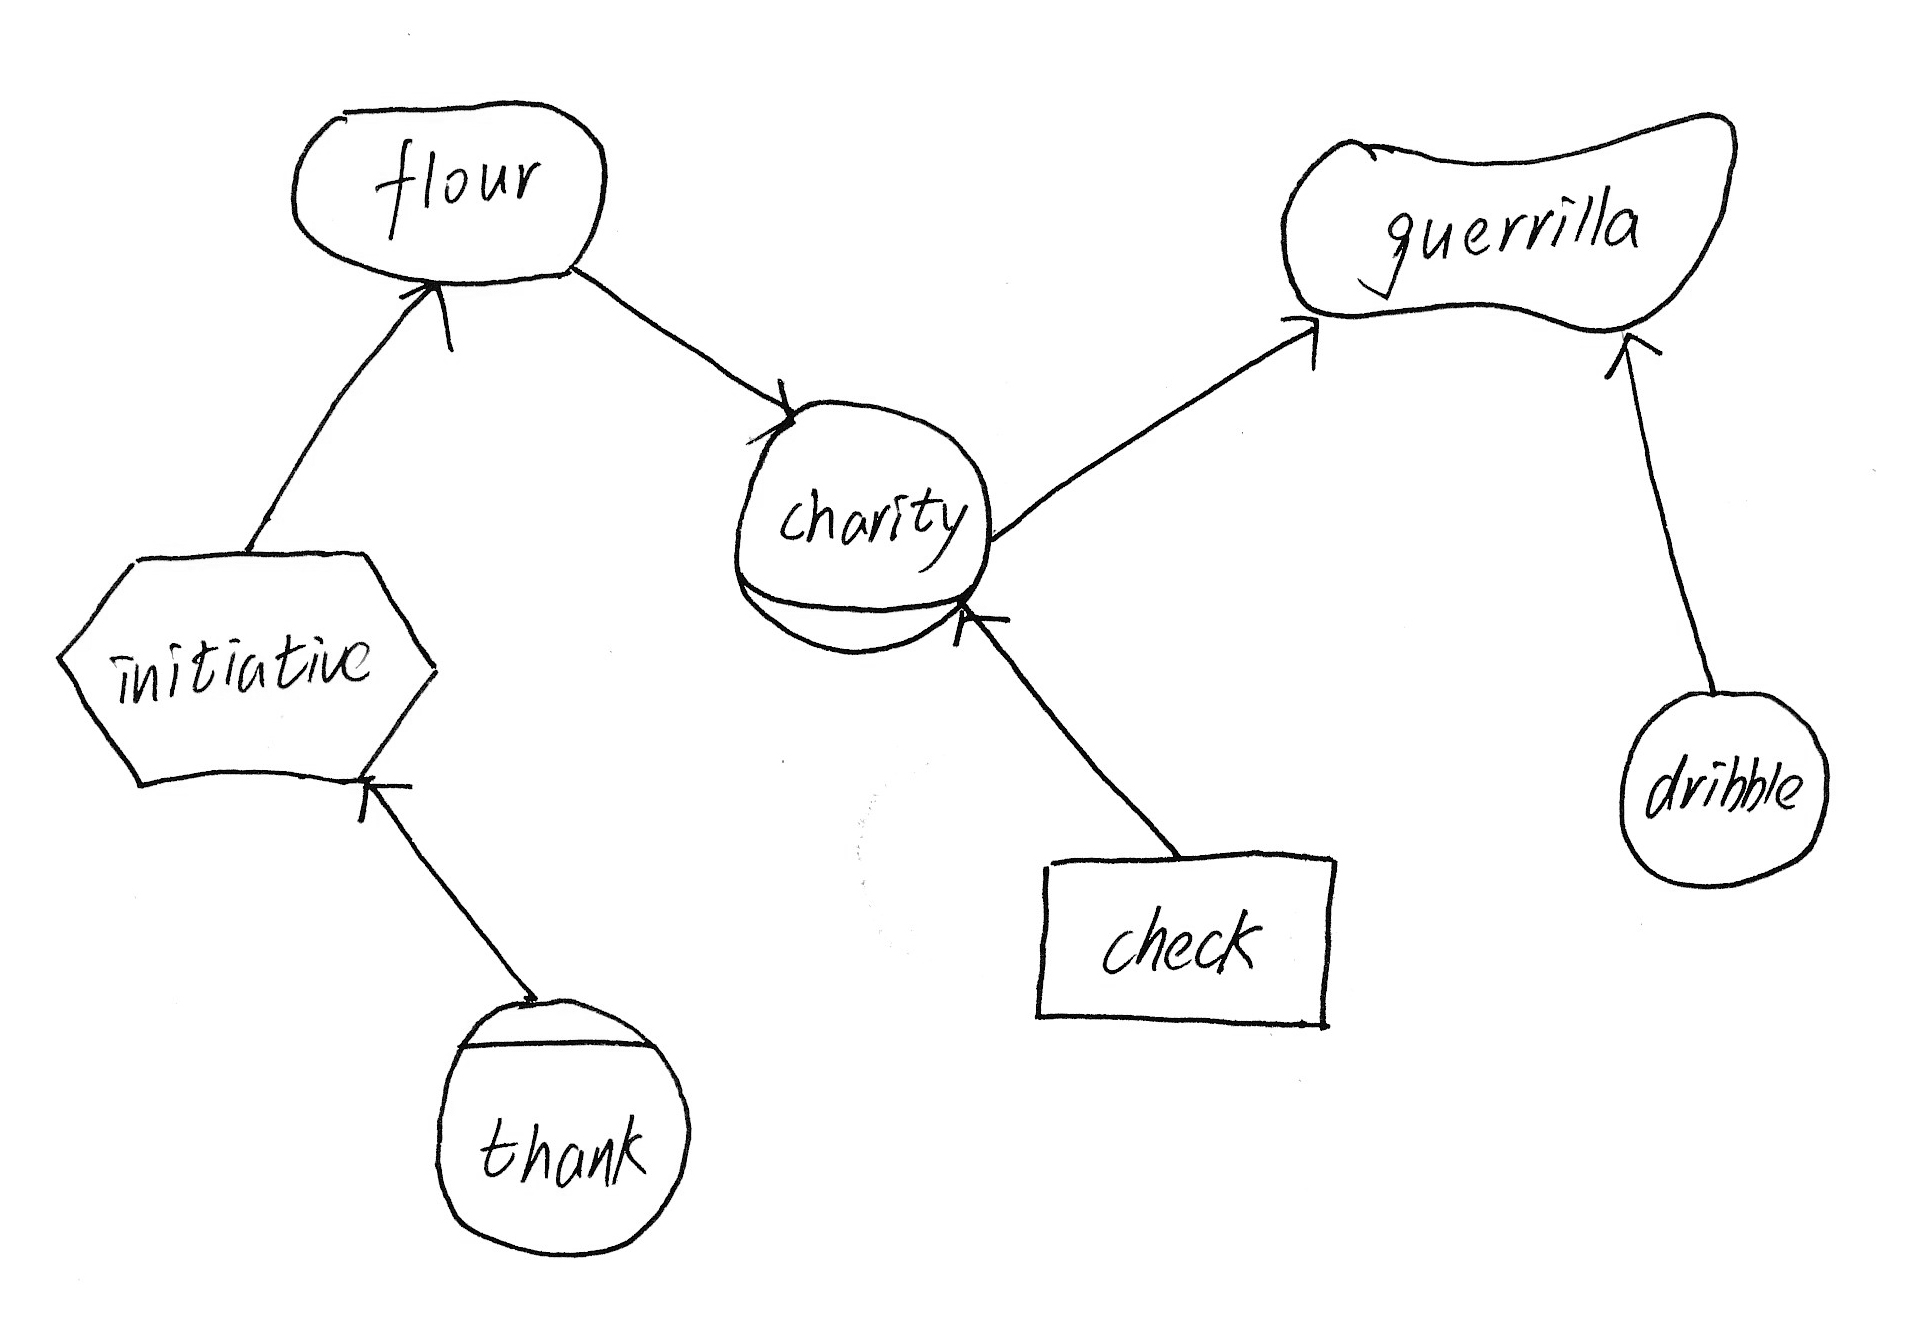 flour
guerrilla
charity
initiative
dribble
check
thank